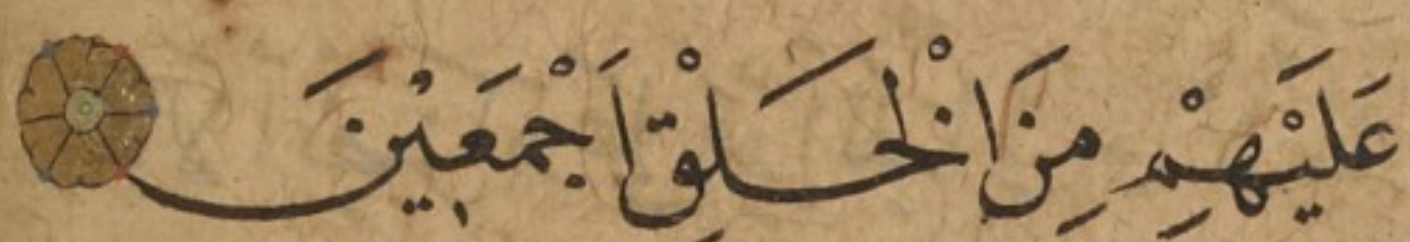 عَلَيْهِمْ مِنَ الْخَلْقِ اَجْمَعِيْنَ